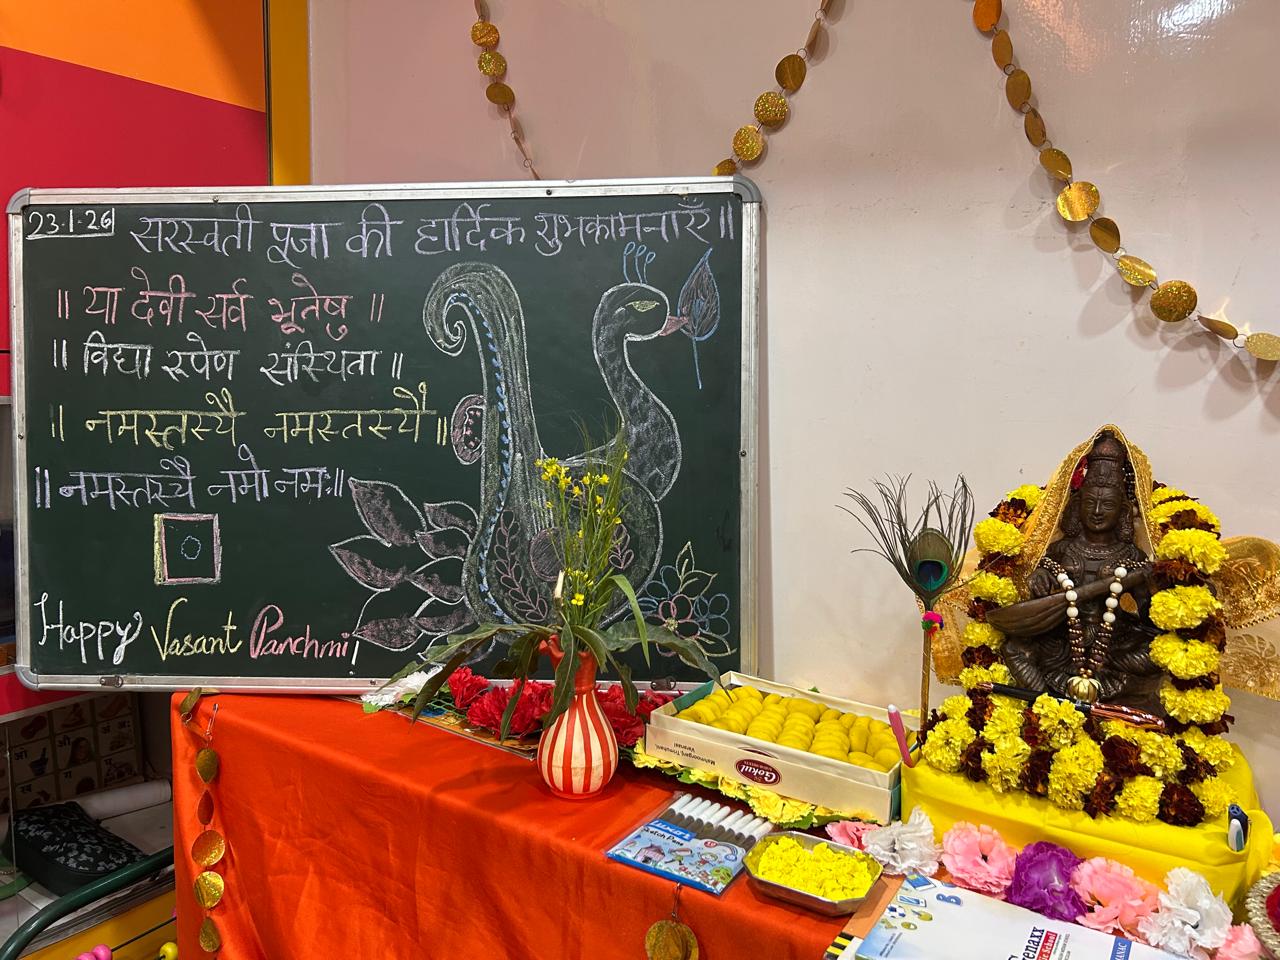 23.1.26
सरस्वती पूजा की हार्दिक शुभकामनाएँ॥
॥ या देवी सर्व भूतेषु ॥
॥ विद्या रुपेण संस्थिता ॥
॥ नमस्तस्यै नमस्तस्यै ॥
॥ नमस्तस्यै नमो नमः ॥
Happy Vasant Panchmi,
Mahmoorganj, Trimuhani,
Varanasi
Gokul
Sketch Pens